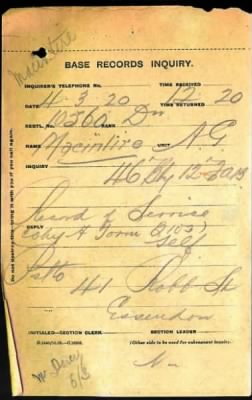 Macintire
BASE RECORDS INQUIRY.
INQUIRER'S TELEPHONE No.
TIME RECEIVED
DATE 4 3 20
12 20
TIME RETURNED
REGTL. No. 10560 RANK Dvr
NAME Macintire UNIT N G
INQUIRY 46th By 12
Record of Service
REPLY
Copy A Form B103
Self
41 Robb St
Essendon
INITIALED—SECTION CLERK.
SECTION LEADER
(Other side to be used for subsequent inquiry).
Do not destroy this—bring it with you if you call again.
6/3